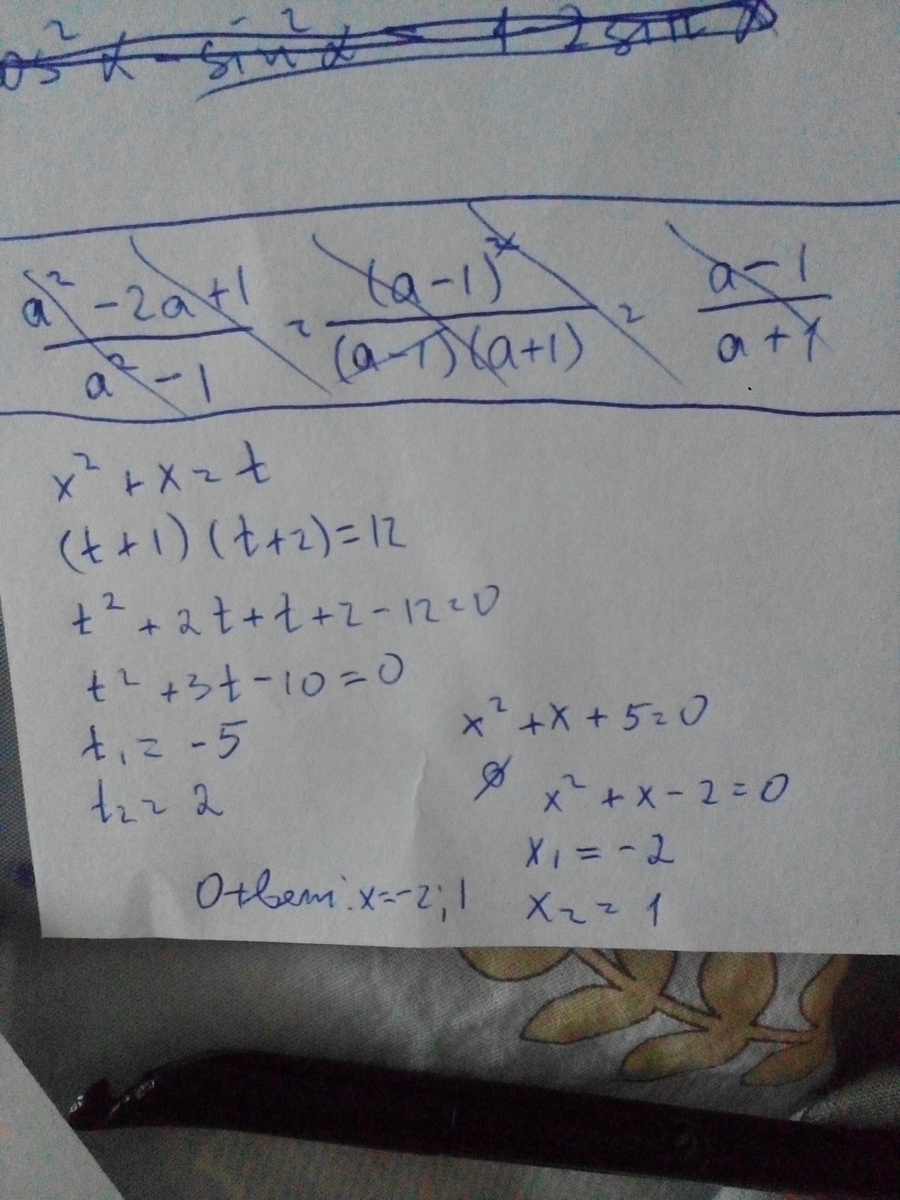 os²α - sin²α = 1 - 2 sin²α
a² - 2a + 1 / a² - 1 = (a - 1)² / (a - 1)(a + 1) = a - 1 / a + 1
x² + x = t
(t + 1)(t + 2) = 12
t² + 2t + t + 2 - 12 = 0
t² + 3t - 10 = 0
t₁ = -5
t₂ = 2
x² + x + 5 = 0
∅
x² + x - 2 = 0
x₁ = -2
x₂ = 1
Ответ: x = -2; 1